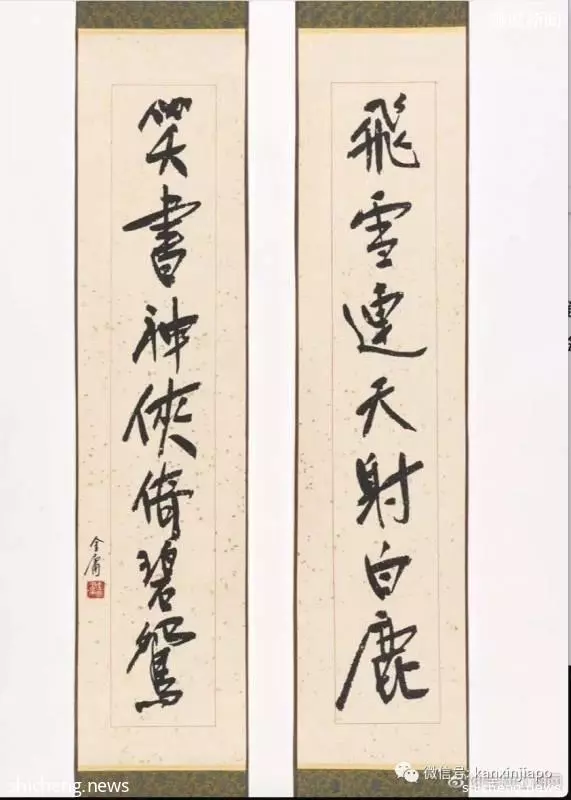 飛雪連天射白鹿
笑書神俠倚碧鴛
金庸
微信号: kanxinjiapo
shicheng.news
shicheng.news